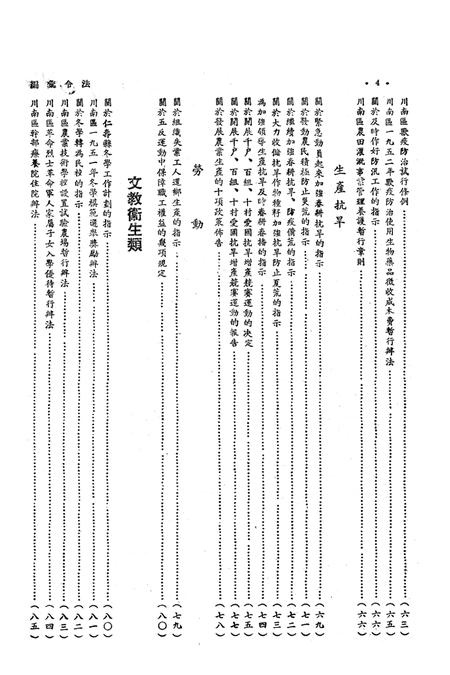 ·4·
法令彙編
川南區獸疫防治試行條例……(六三)
川南區一九五二年獸疫防治使用生物藥品徵收成本費暫行辦法……(六五)
關於及時作好防汛工作的指示……(六六)
川南區農田灌漑事業管理養護暫行章則……(六六)
生產抗旱
關於緊急動員起來加强春耕抗旱的指示……(六九)
關於發動農民積極防止災荒的指示……(七一)
關於繼續加强春耕抗旱、防疫備荒的指示……(七二)
關於大力收儲抗旱作物種籽加强抗旱防止夏荒的指示……(七三)
為加强領導生產抗旱及時春耕春播的指示……(七四)
關於開展千戶、百組、十村愛國抗旱增產競賽運動的决定……(七五)
關於開展千戶、百組、十村愛國抗旱增產競賽運動的報告……(七七)
關於發展農業生產的十項政策佈告……(七八)
勞動
關於組織失業工人還鄉生產的指示……(七九)
關於五反運動中保障職工權益的幾項規定……(八〇)
文教衞生類
關於仁壽縣冬學工作計劃的指示……(八〇)
川南區一九五一年冬學模範選舉奬勵辦法……(八一)
關於冬學轉為民校的指示……(八二)
川南區農業技術學校設置試驗農場暫行辦法……(八三)
川南區革命烈士革命軍人家屬子女入學優待暫行辦法……(八四)
川南區幹部療養院住院辦法……(八五)